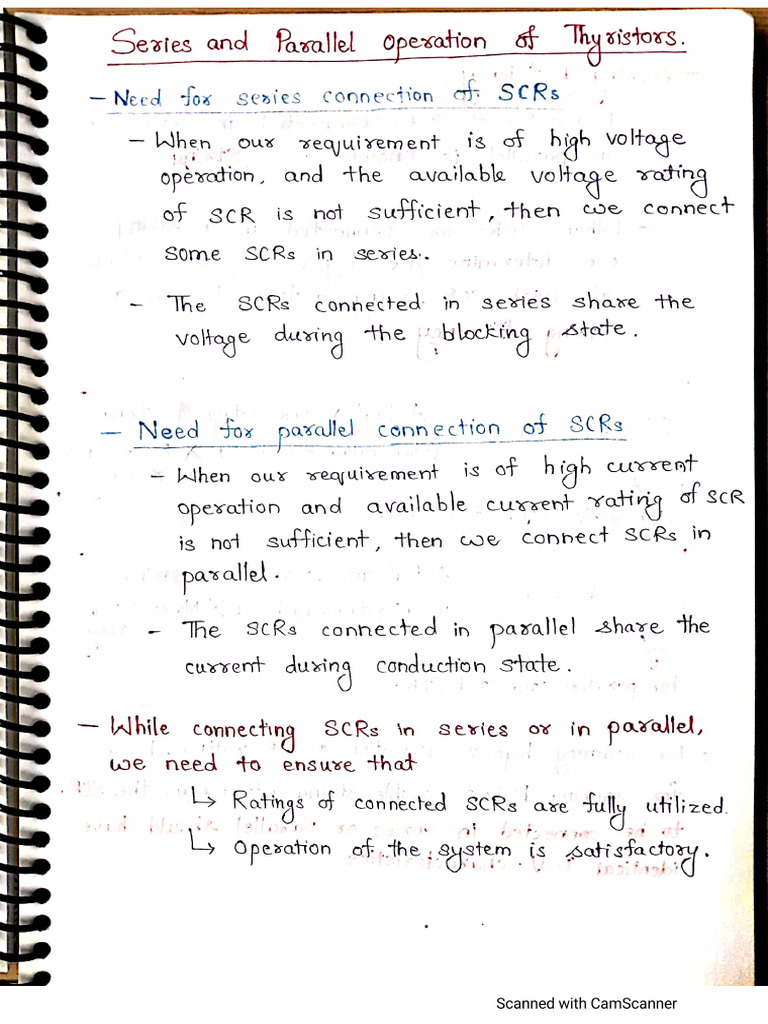 Series and Parallel Operation of Thyristors.
- Need for series connection of SCRs
- When our requirement is of high voltage
operation, and the available voltage rating
of SCR is not sufficient, then we connect
some SCRs in series.
- The SCRs connected in series share the
voltage during the blocking state.
- Need for parallel connection of SCRs
- When our requirement is of high current
operation and available current rating of SCR
is not sufficient, then we connect SCRs in
parallel.
- The SCRs connected in parallel share the
current during conduction state.
- While connecting SCRs in series or in parallel,
we need to ensure that
↳ Ratings of connected SCRs are fully utilized.
↳ Operation of the system is satisfactory.
Scanned with CamScanner